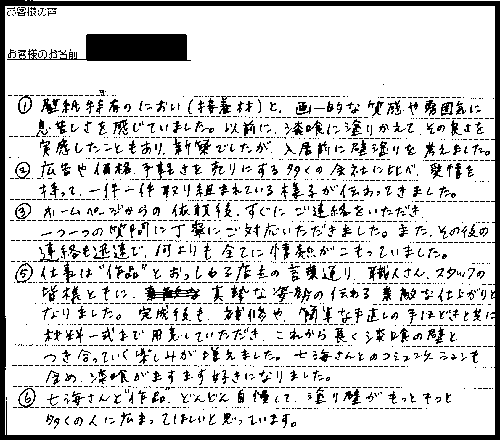 お客様の声
お客様のお名前
① 壁紙特有のにおい(接着材)と、画一的な質感や雰囲気に
息苦しさを感じていました。以前に、漆喰に塗りかえて、その良さを
実感したこともあり、新築でしたが、入居前に壁塗りを考えました。
② 広告や価格、手軽さを売りにする多くの会社に比べ、愛情を
持って、一件一件取り組まれている様子が伝わってきました。
③ ホームページからの依頼後、すぐにご連絡をいただき、
一つ一つの質問に丁寧にご対応いただきました。また、その後の
連絡も迅速で、何よりも全てに情熱がこもっていました。
⑤ 仕事は"作品"とおっしゃる店主の言葉通り、職人さん、スタッフの
皆様ともに、真摯な姿勢の伝わる素敵な仕上がりと
なりました。完成後も、補修や、簡単な手直しの手ほどきと共に
材料一式まで用意していただき、これから長く漆喰の壁と
つき合っていく楽しみが増えました。七海さんとのコミュニケーションも
含め、漆喰がますます好きになりました。
⑥ 七海さんと作品、どんどん自慢して、塗り壁がもっともっと
多くの人に広まってほしいと思っています。